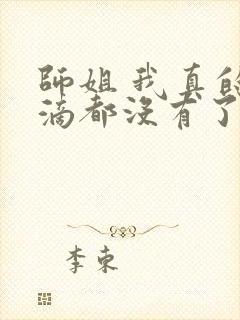 師姐我真的
滴都沒有了
李東